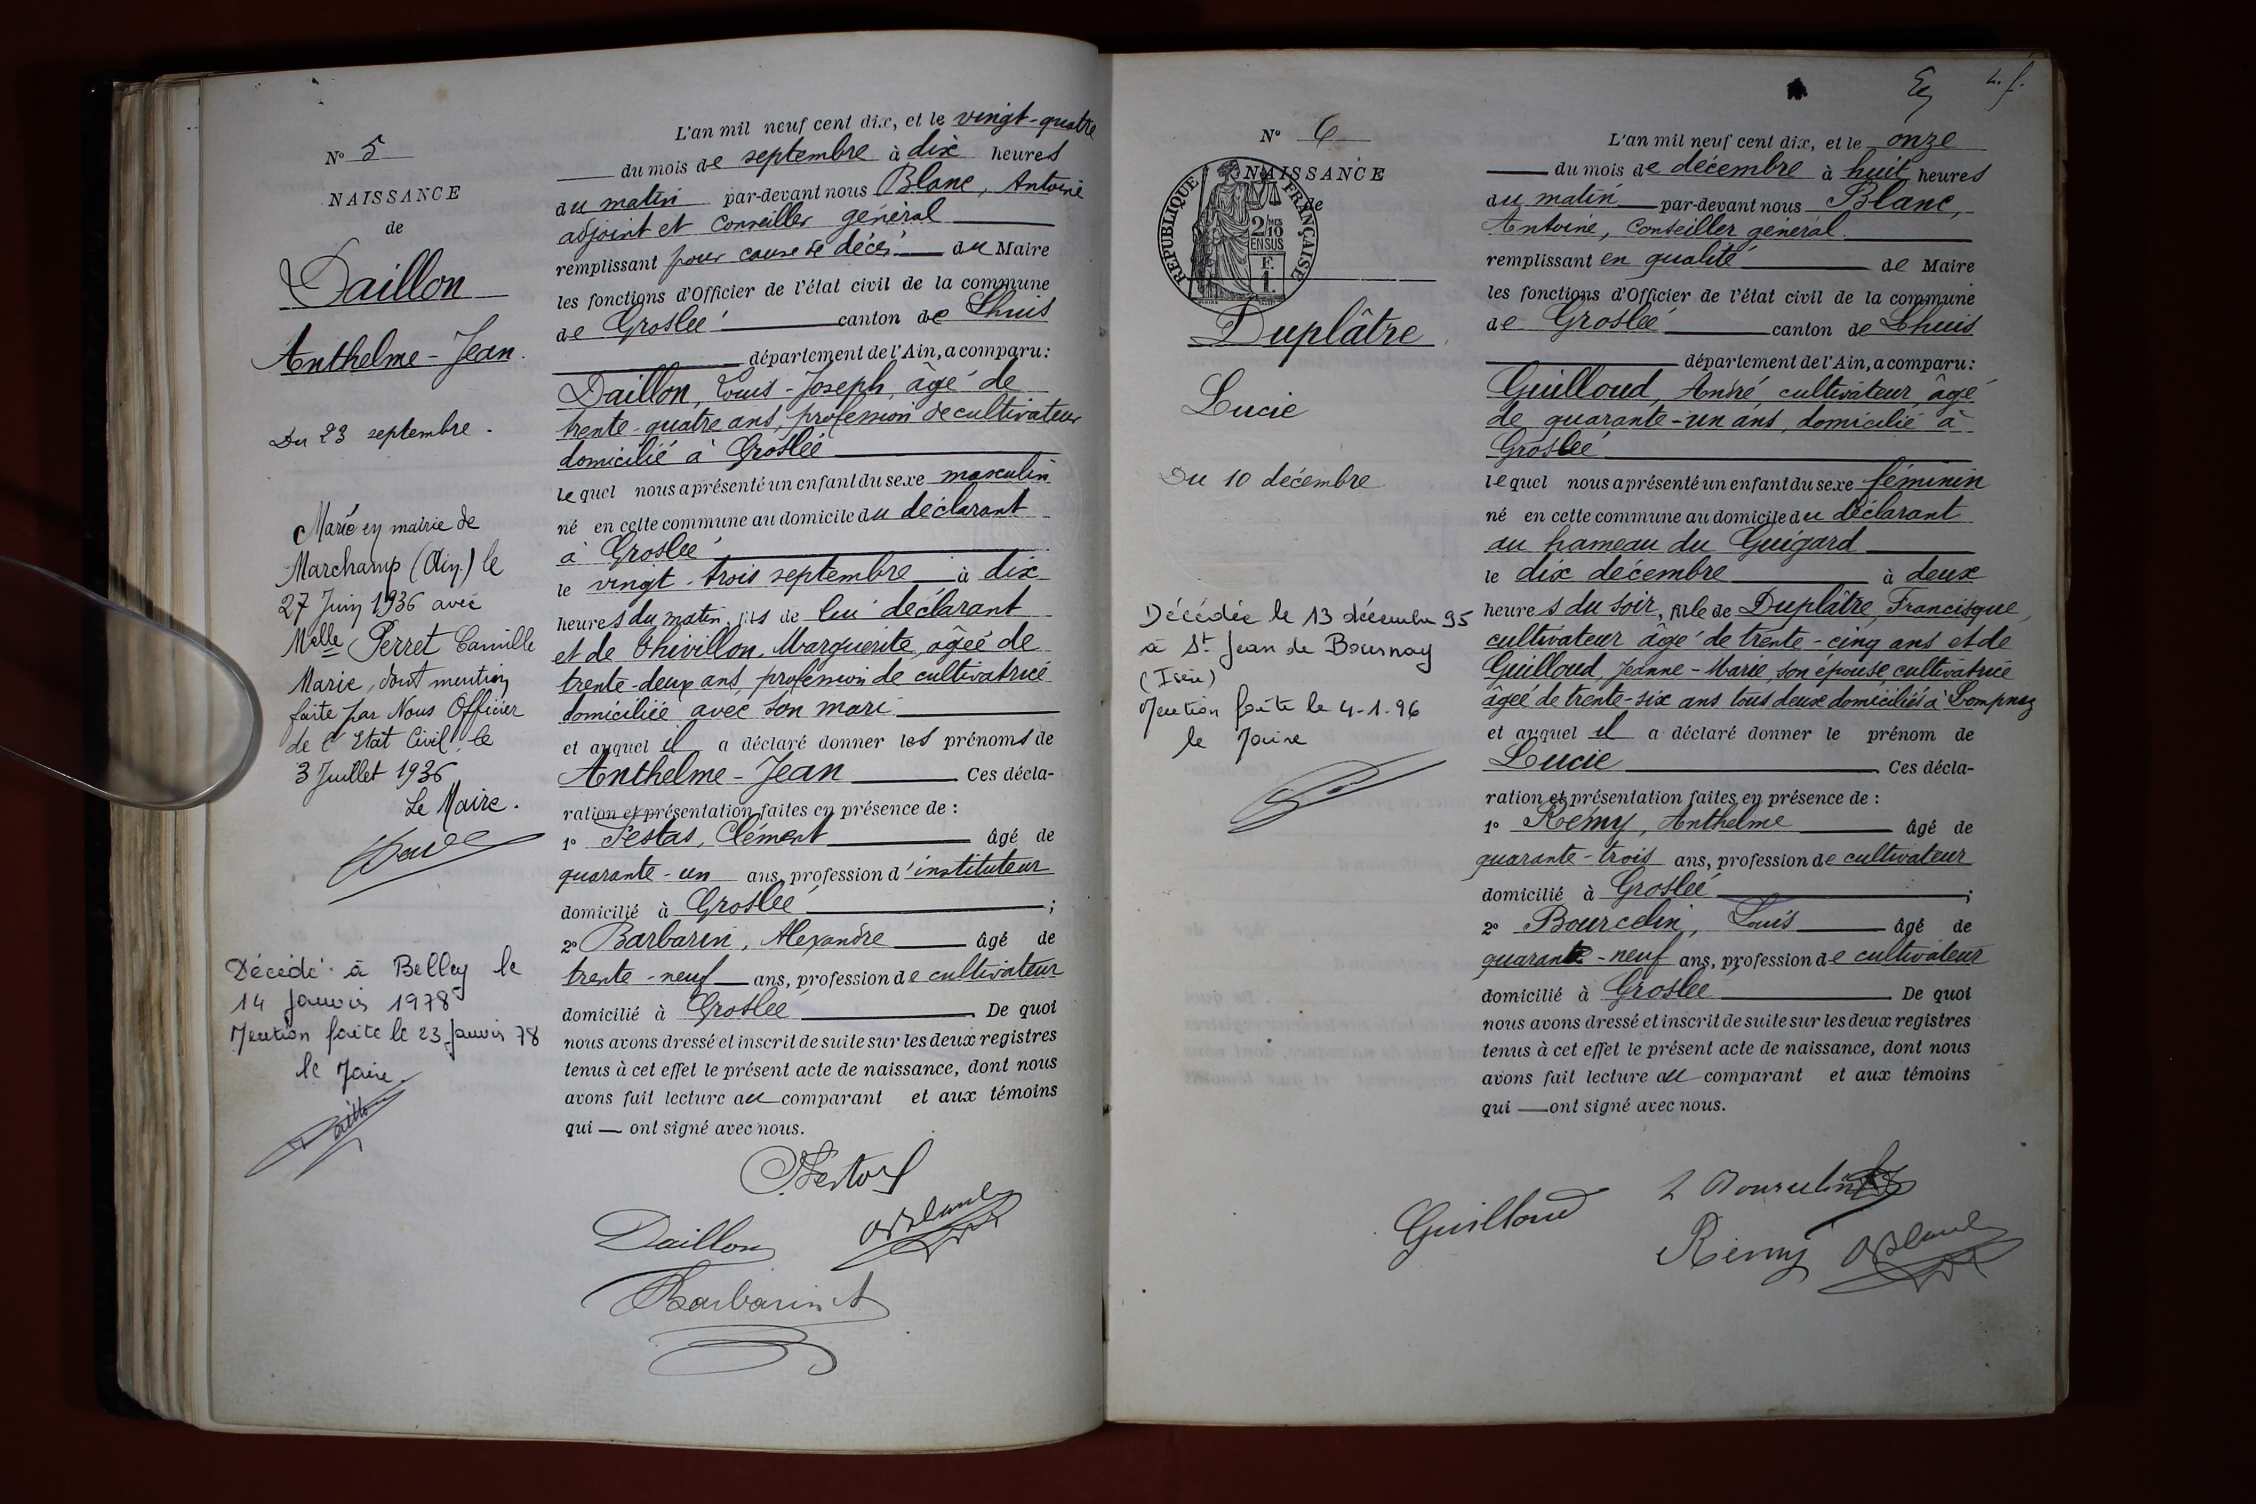 N° 5
NAISSANCE
de
Daillon
Anthelme-Jean.
Du 23 septembre.
Marié en mairie de
Marchamp (Ain) le
27 Juin 1936 avec
Melle Perret Camille
Marie, dont mention
faite par Nous Officier
de l'Etat Civil, le
3 Juillet 1936
Le Maire.
Décédé à Belley le
14 janvier 1978
Mention faite le 23 Janvier 78
le Maire.
L'an mil neuf cent dix, et le vingt-quatre
du mois de septembre à dix heures
du matin par-devant nous Blanc, Antoine
adjoint et conseiller général
remplissant pour cause de décès du Maire
les fonctions d'Officier de l'état civil de la commune
de Groslée canton de Lhuis
département de l'Ain, a comparu:
Daillon, Louis-Joseph, âgé de
trente-quatre ans, profession de cultivateur
domicilié à Groslée
lequel nous a présenté un enfant du sexe masculin
né en cette commune au domicile du déclarant
à Groslée
le vingt-trois septembre à dix
heures du matin, fils de lui déclarant
et de Thivillon, Marguerite, âgée de
trente-deux ans, profession de cultivatrice
domiciliée avec son mari
et auquel il a déclaré donner les prénoms de
Anthelme-Jean Ces décla-
ration et présentation faites en présence de :
1° Festas, Clément âgé de
quarante-un ans, profession d'instituteur
domicilié à Groslée ;
2° Barbarin, Alexandre âgé de
trente-neuf ans, profession de cultivateur
domicilié à Groslée De quoi
nous avons dressé et inscrit de suite sur les deux registres
tenus à cet effet le présent acte de naissance, dont nous
avons fait lecture au comparant et aux témoins
qui ont signé avec nous.
Daillon
ABlanc
Barbarin A
4. f.
N° 6
NAISSANCE
de
REPUBLIQUE FRANÇAISE
2/10
EN SUS
F.
1.
Duplâtre
Lucie
Du 10 décembre
Décédée le 13 décembre 95
à St Jean de Bournay
(Isère)
Mention faite le 4-1-96
le Maire
L'an mil neuf cent dix, et le onze
du mois de décembre à huit heures
du matin par-devant nous Blanc,
Antoine, conseiller général
remplissant en qualité de Maire
les fonctions d'Officier de l'état civil de la commune
de Groslée canton de Lhuis
département de l'Ain, a comparu:
Guilloud, André cultivateur âgé
de quarante-un ans, domicilié à
Groslée
lequel nous a présenté un enfant du sexe féminin
né en cette commune au domicile du déclarant
au hameau du Guigard
le dix décembre à deux
heures du soir, fille de Duplâtre, Francisque,
cultivateur âgé de trente-cinq ans et de
Guilloud, Jeanne-Marie, son épouse, cultivatrice
âgée de trente-six ans tous deux domiciliés à Lompnaz
et auquel il a déclaré donner le prénom de
Lucie Ces décla-
ration et présentation faites en présence de :
1° Rémy, Anthelme âgé de
quarante-trois ans, profession de cultivateur
domicilié à Groslée ;
2° Bourcelin, Louis âgé de
quarante-neuf ans, profession de cultivateur
domicilié à Groslée De quoi
nous avons dressé et inscrit de suite sur les deux registres
tenus à cet effet le présent acte de naissance, dont nous
avons fait lecture au comparant et aux témoins
qui ont signé avec nous.
L Bourcelin
Guilloud
Rémy ABlanc